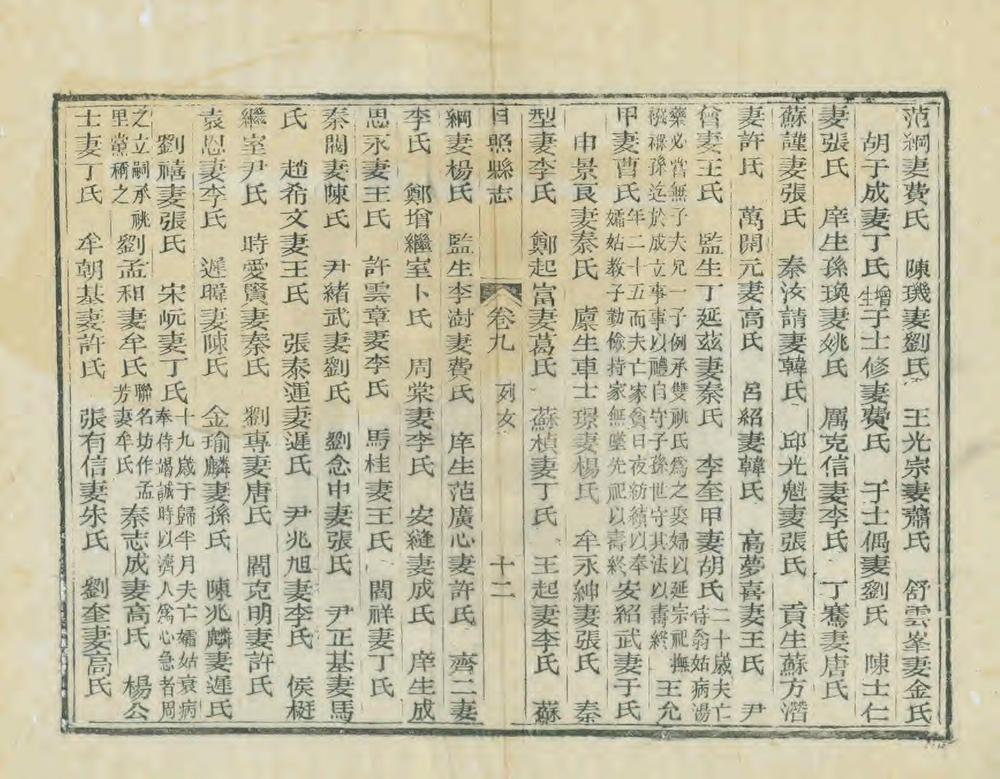 范綱妻費氏　陳璣妻劉氏　王光宗妻蕭氏　舒雲峯妻金氏
胡子成妻丁氏　增生于士修妻費氏　于士偶妻劉氏　陳士仁
妻張氏　庠生孫瑍妻姚氏　厲克信妻李氏　丁騫妻唐氏
蘇謹妻張氏　秦汝請妻韓氏　邱光魁妻張氏　貢生蘇方潛
妻許氏　萬開元妻高氏　呂紹妻韓氏　高夢喜妻王氏　尹
曾妻王氏　監生丁延茲妻秦氏　李奎甲妻胡氏二十歲夫亡
侍翁姑病湯
藥必嘗無子夫兄一子例承雙祧氏爲之娶婦以延宗祀撫
孫迄於成立事事以禮自守子孫世守其法以壽終　王允
甲妻曹氏年二十五而夫亡家貧日夜紡績以奉
孀姑教子勤儉持家無墜先祀以壽終　安紹武妻于氏
申景良妻秦氏　廩生車士璟妻楊氏　牟永紳妻張氏　秦
型妻李氏　鄭起富妻葛氏　蘇楨妻丁氏　王起妻李氏　蘇
日照縣志　卷九　列女　十二
綱妻楊氏　監生李澍妻費氏　庠生范廣心妻許氏　齊二妻
李氏　鄭增繼室卜氏　周棠妻李氏　安縫妻成氏　庠生成
思永妻王氏　許雲章妻李氏　馬桂妻王氏　閻祥妻丁氏
秦閣妻陳氏　尹緒武妻劉氏　劉念中妻張氏　尹正基妻馬
氏　趙希文妻王氏　張泰運妻遲氏　尹兆旭妻李氏　侯梃
繼室尹氏　時愛賢妻秦氏　劉專妻唐氏　閻克明妻許氏
袁恩妻李氏　遲暐妻陳氏　金瑜麟妻孫氏　陳兆麟妻遲氏
劉禧妻張氏　宋岏妻丁氏十九歲于歸半月夫亡孀姑衰病
奉侍竭誠時以濟人爲心急者周
之立嗣承祧
里黨稱之　劉孟和妻牟氏聯名坊作孟
芳妻牟氏　秦志成妻高氏　楊公
士妻丁氏　牟朝基妻許氏　張有信妻朱氏　劉奎妻高氏